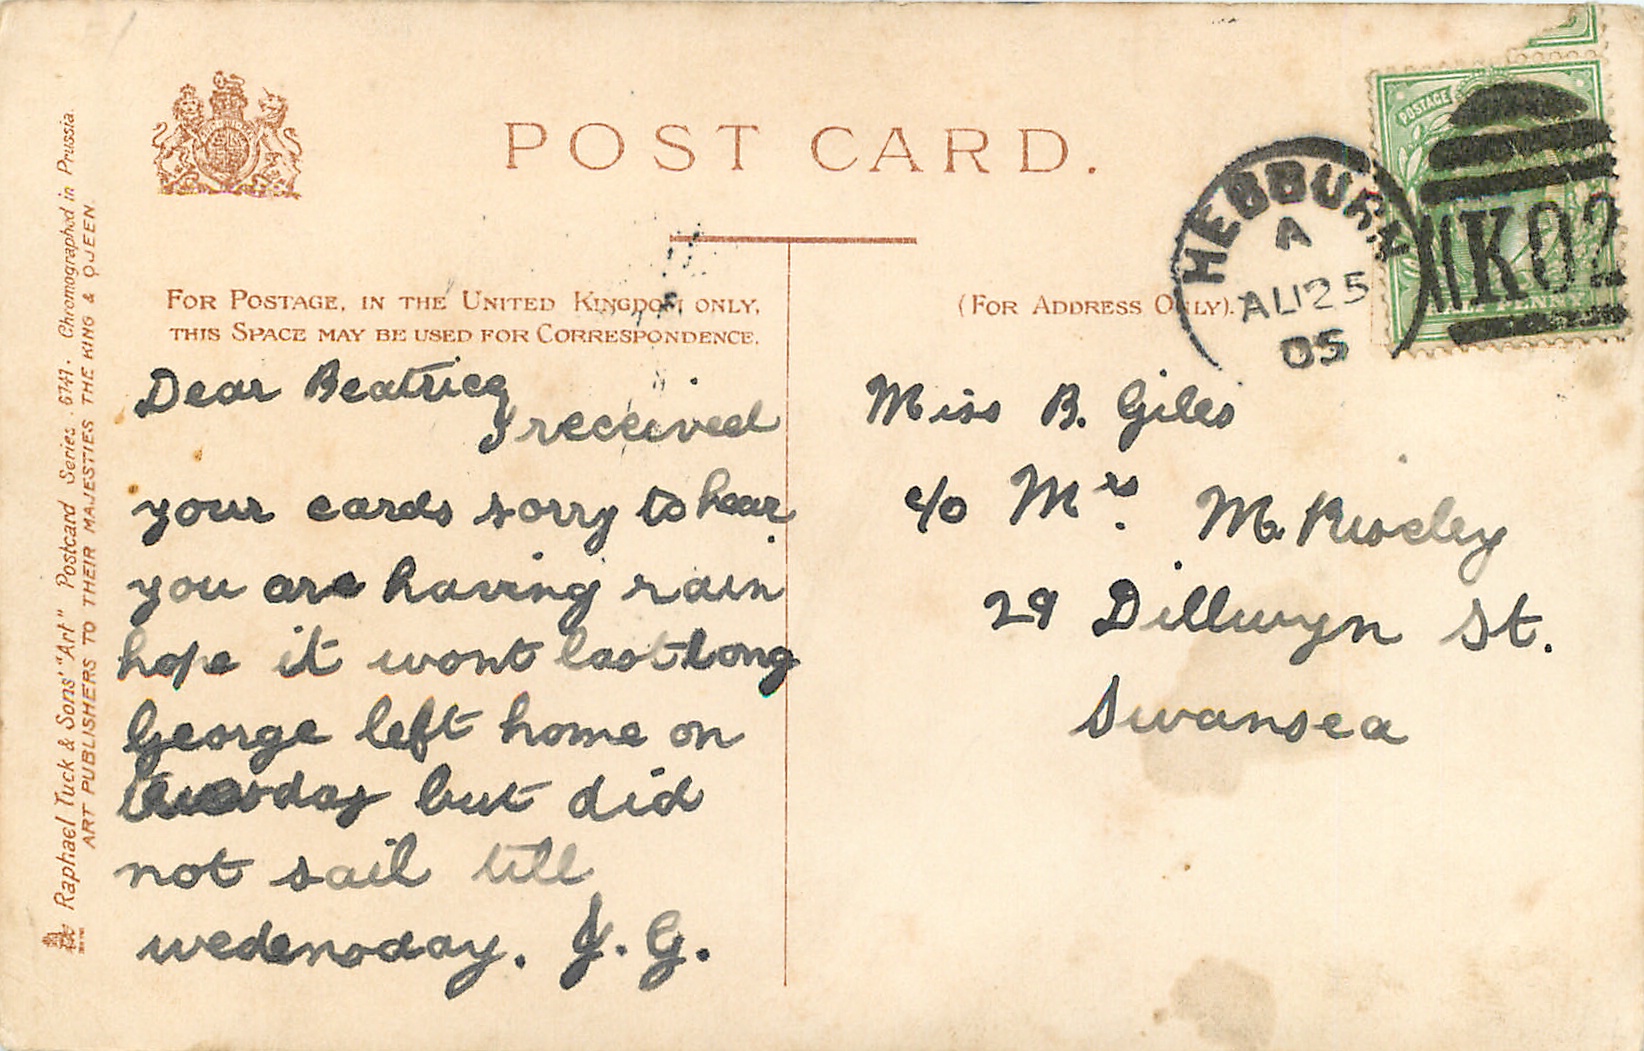 POST CARD.
FOR POSTAGE, IN THE UNITED KINGDOM ONLY,
THIS SPACE MAY BE USED FOR CORRESPONDENCE.
(FOR ADDRESS ONLY).
HEBBURN
A
AU 25
05
K02
POSTAGE
Dear Beatrice
I received
your cards sorry to hear
you are having rain
hope it wont last long
George left home on
tuesday but did
not sail till
wedensday. J. G.
Miss B. Giles
c/o Mrs. M.
29 Dillwyn St.
Swansea
Raphael Tuck & Sons' "Art" Postcard Series. 6741. Chromographed in Prussia.
ART PUBLISHERS TO THEIR MAJESTIES THE KING & QUEEN.